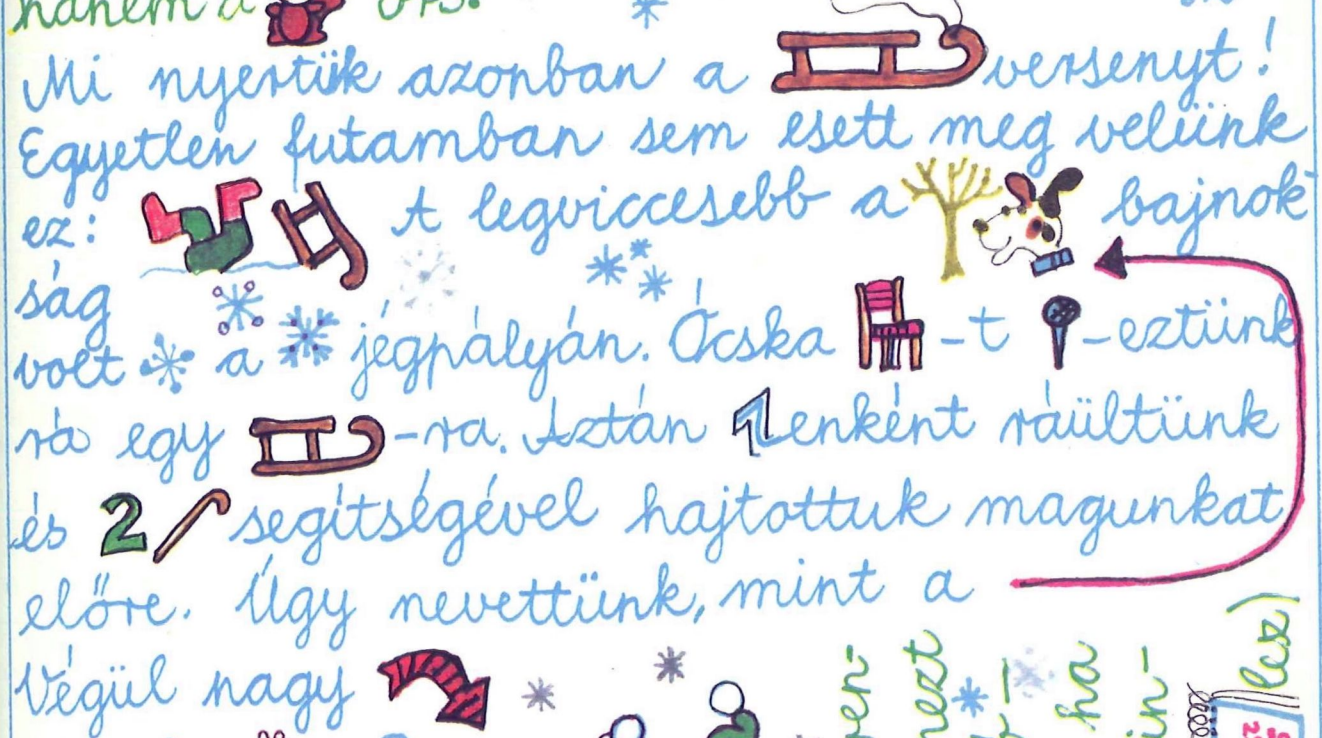 hanem a
Mi nyertük azonban a versenyt!
Egyetlen futamban sem esett meg velünk
ez: A legviccesebb a bajnok
ság
volt a jégpályán. Ócska -t -eztünk
rá egy -ra. Aztán 1enként ráültünk
és 2 segítségével hajtottuk magunkat
előre. Úgy nevettünk, mint a
Végül nagy
ha
lesz)